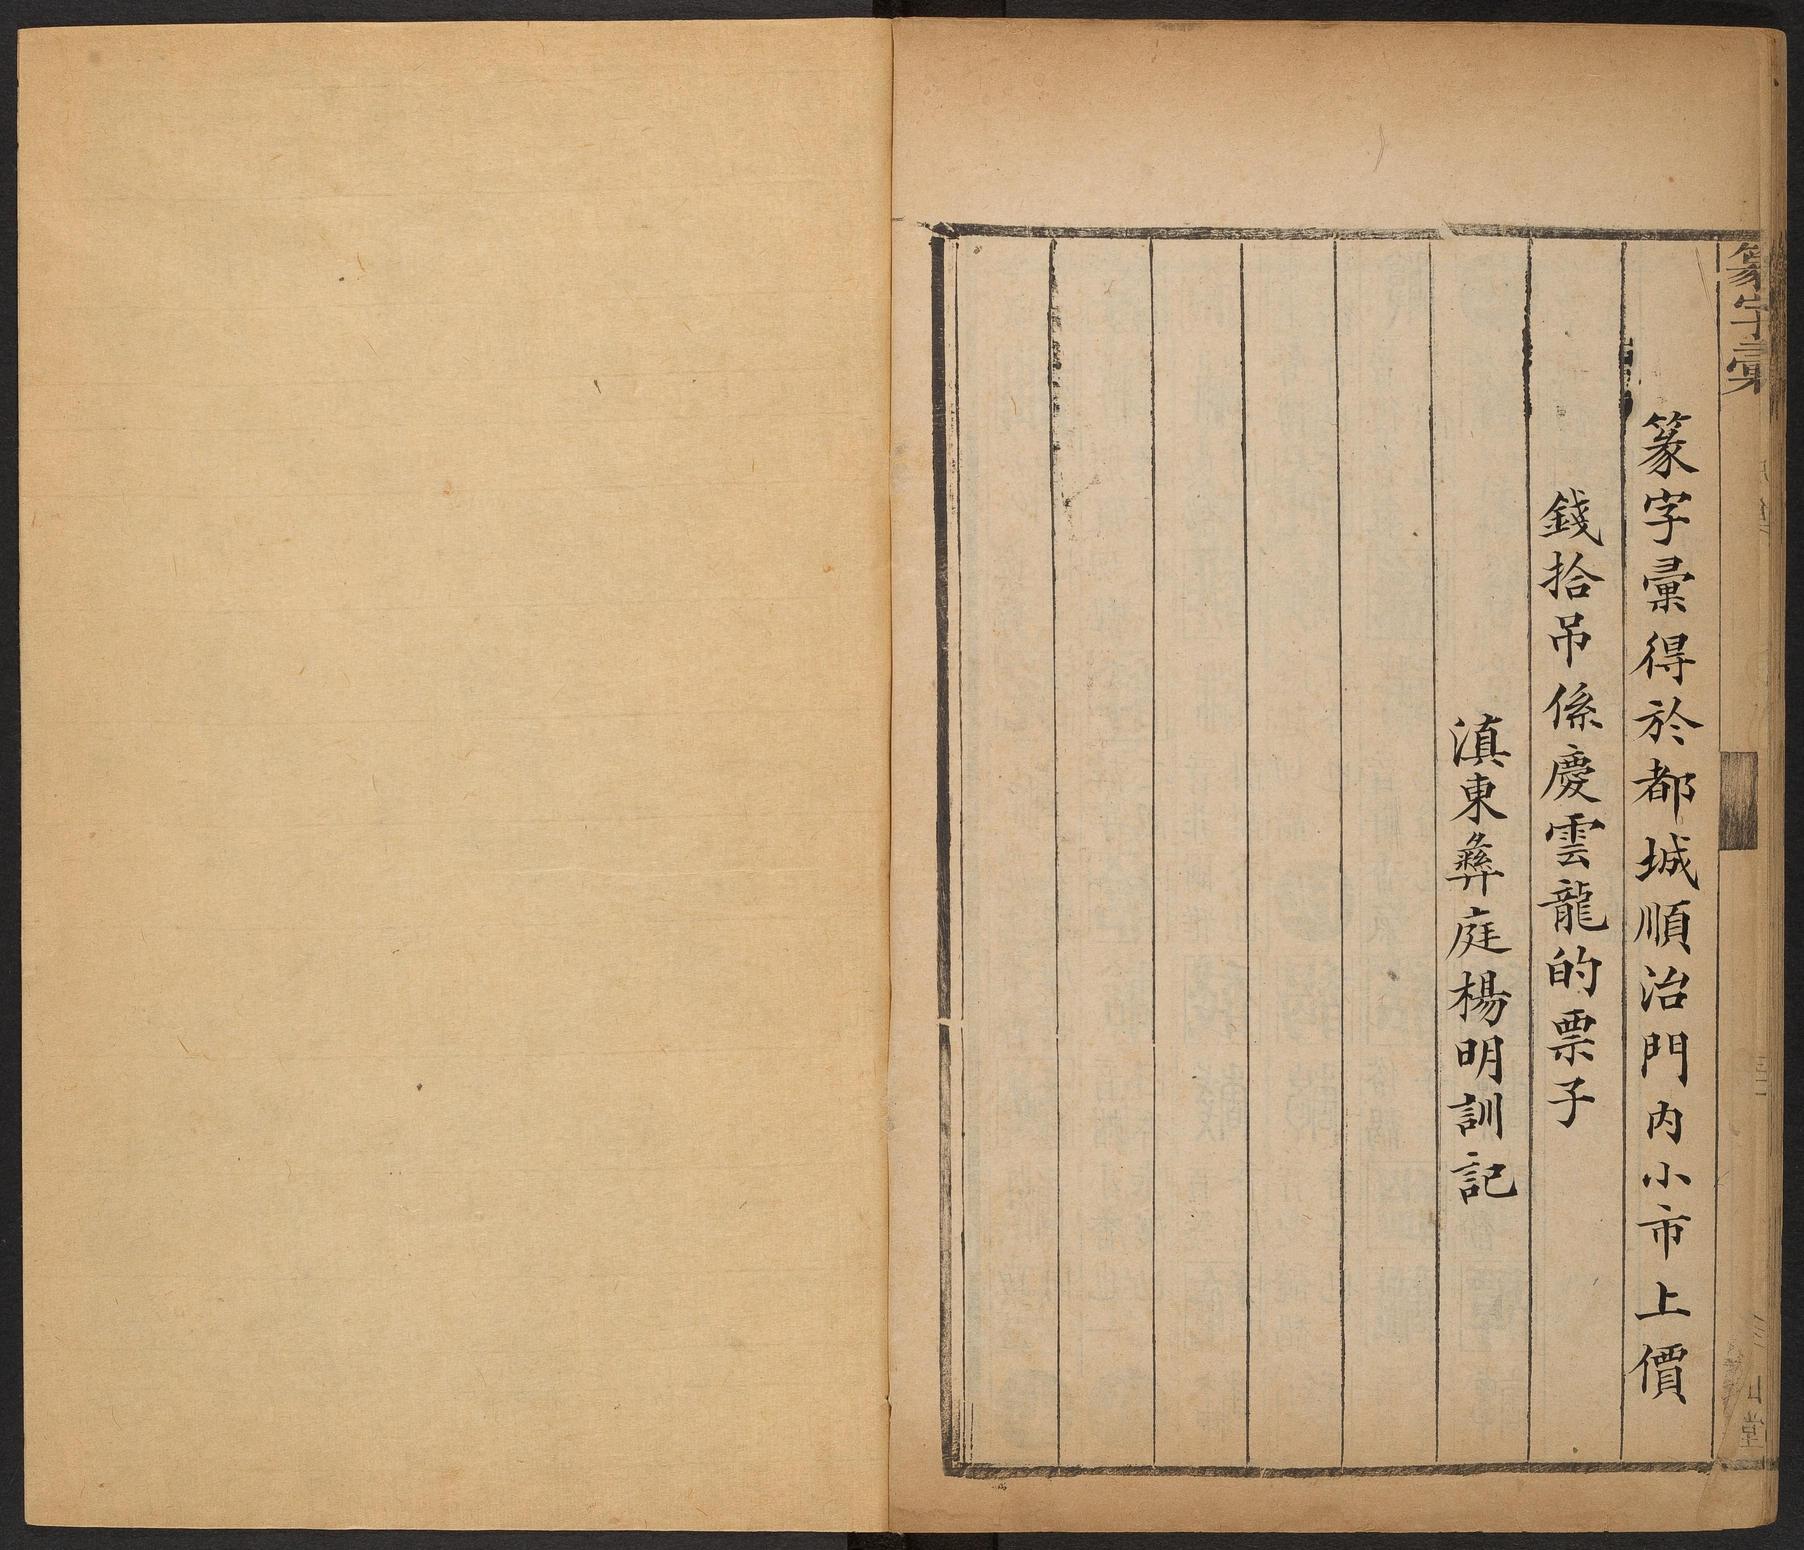 篆字彙
篆字彙得於都城順治門内小市上價
錢拾吊係慶雲龍的票子
滇東彝庭楊明訓記
山堂